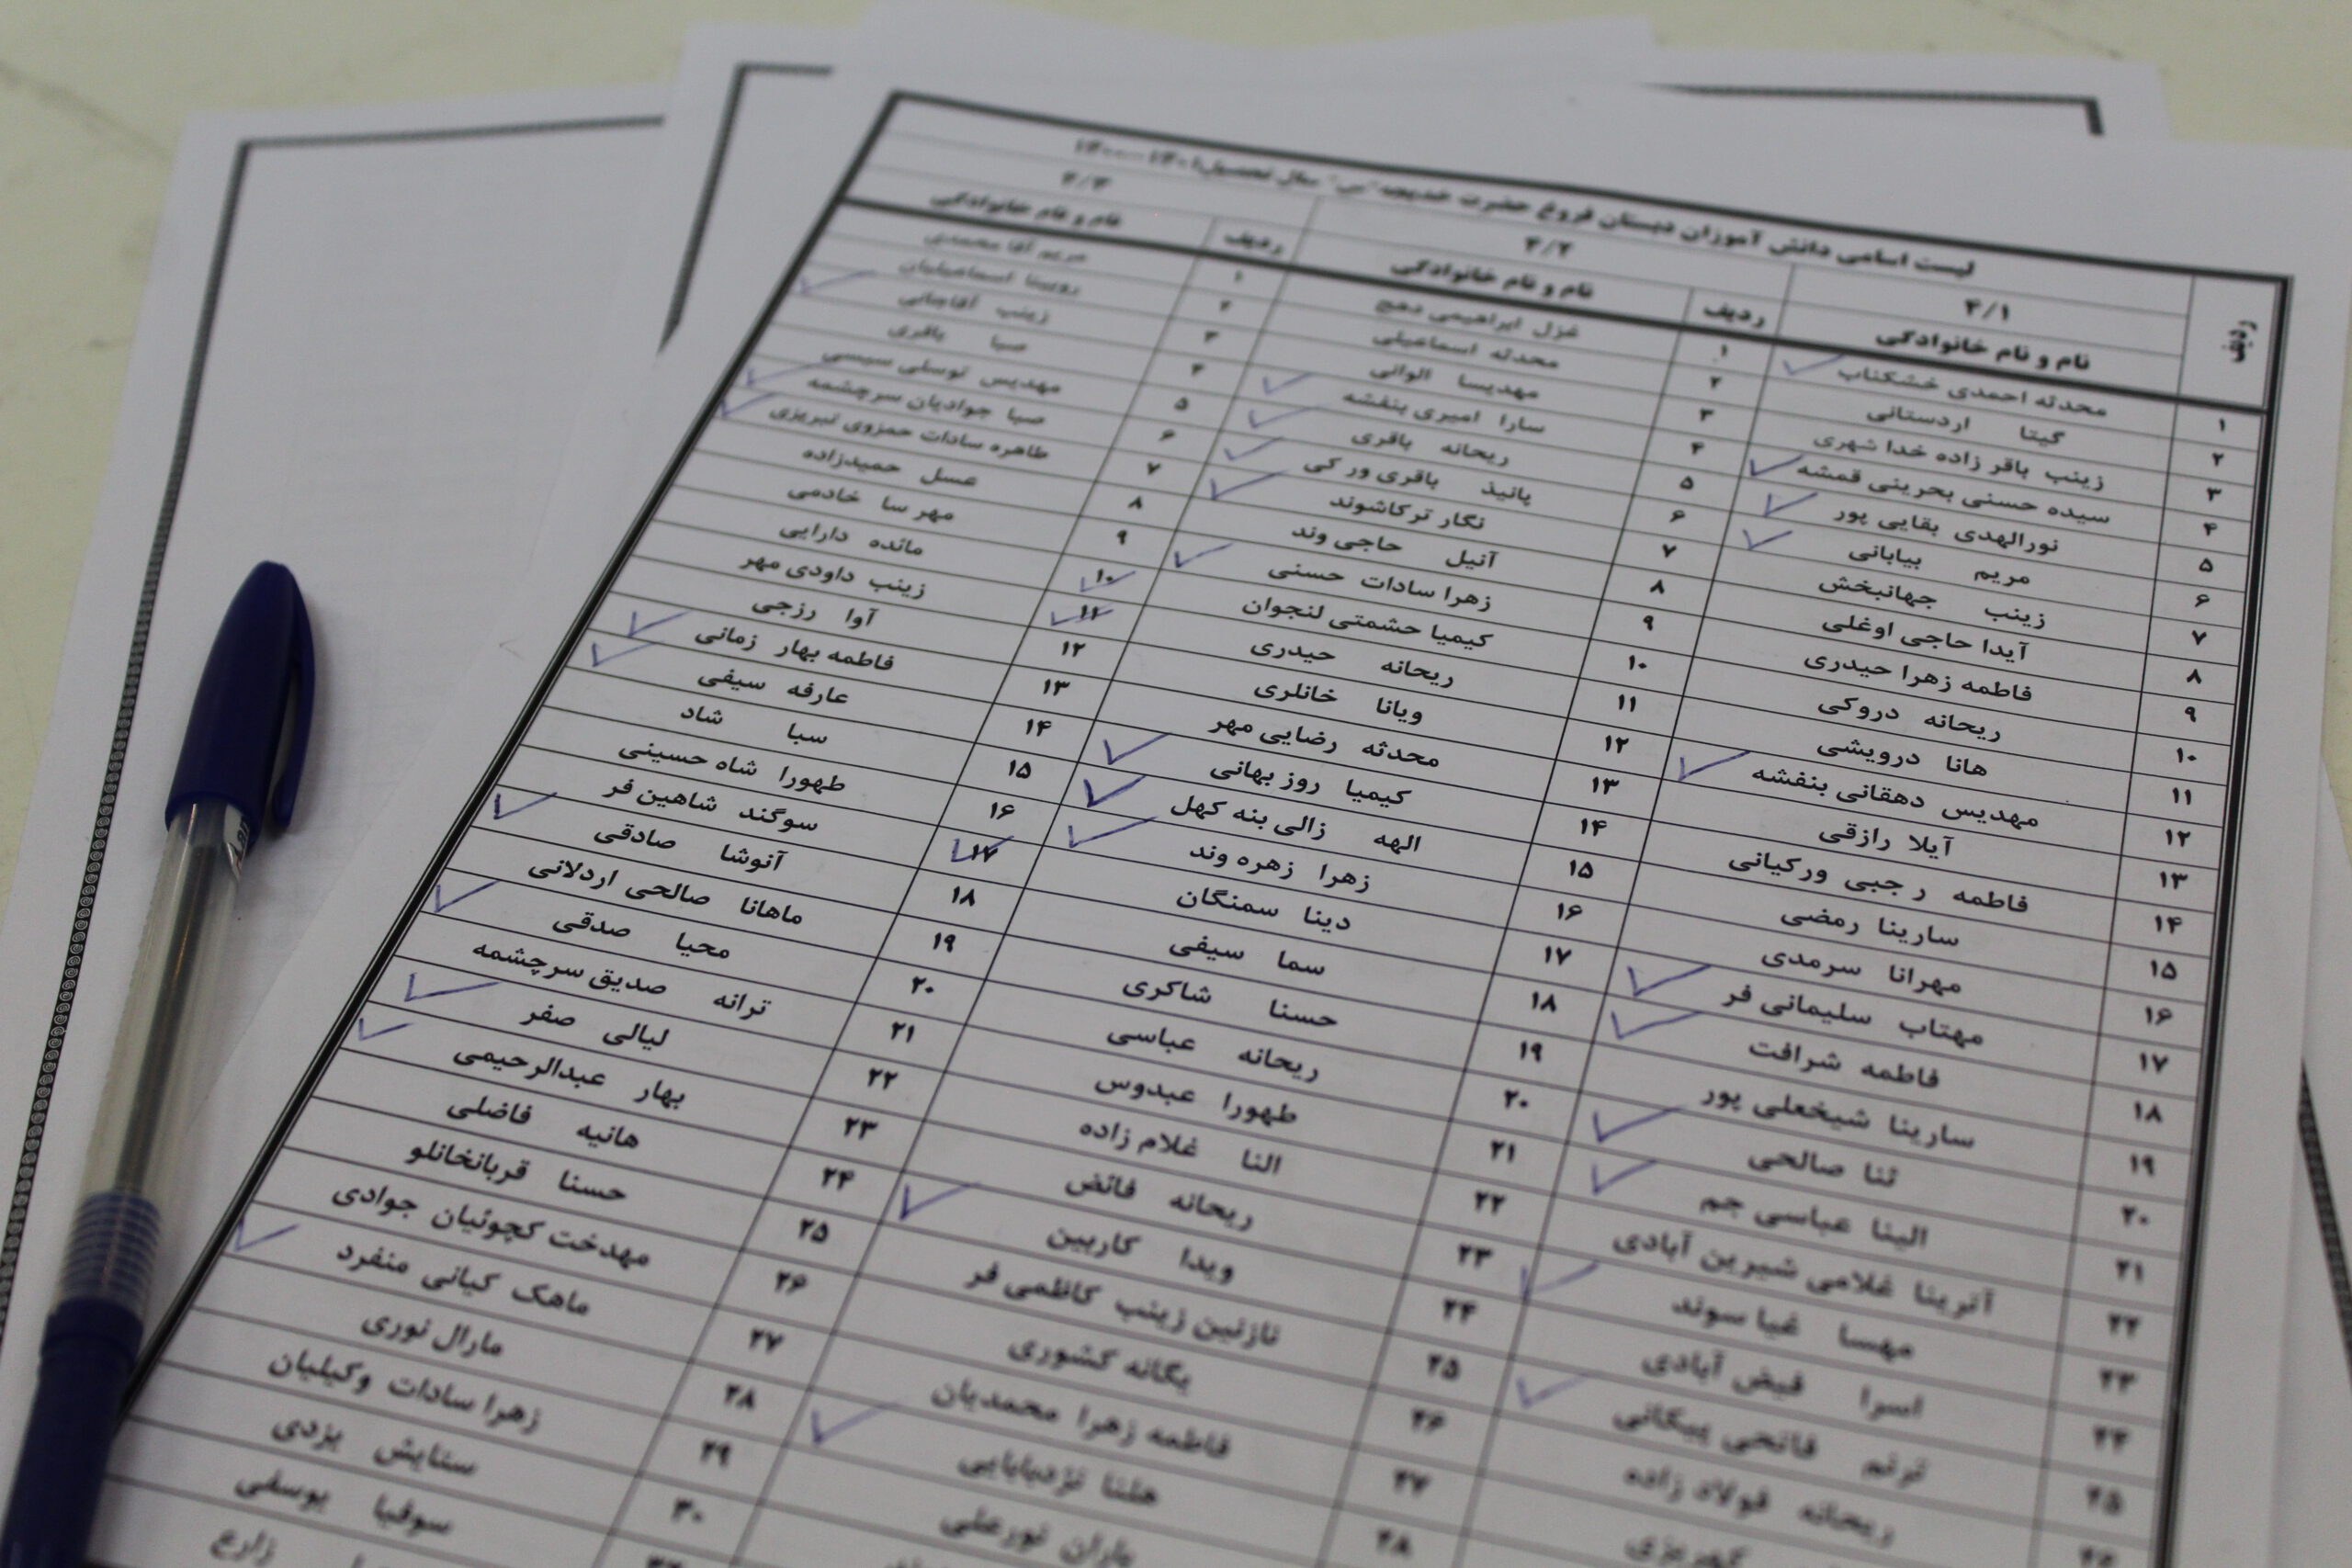 لیست اسامی دانش آموزان دبستان فروغ حضرت خدیجه "س" سال تحصیلی ۱۴۰۱-۱۴۰۰
۴/۱
ردیف نام و نام خانوادگی
۱ محدثه احمدی خشکناب
۲ گیتا اردستانی
۳ زینب باقر زاده خدا شهری
۴ سیده حسنی بحرینی قمشه
۵ نورالهدی بقایی پور
۶ مریم بیابانی
۷ زینب جهانبخش
۸ آیدا حاجی اوغلی
۹ فاطمه زهرا حیدری
۱۰ ریحانه دروکی
۱۱ هانا درویشی
۱۲ مهدیس دهقانی بنفشه
۱۳ آیلا رازقی
۱۴ فاطمه رجبی ورکیانی
۱۵ سارینا رمضی
۱۶ مهرانا سرمدی
۱۷ مهتاب سلیمانی فر
۱۸ فاطمه شرافت
۱۹ سارینا شیخعلی پور
۲۰ ثنا صالحی
۲۱ الینا عباسی جم
۲۲ آنرینا غلامی شیرین آبادی
۲۳ مهسا غیاسوند
۲۴ اسرا فیض آبادی
۲۵ ترنم فاتحی پیکانی
۲۶ ریحانه فولاد زاده
۴/۲
ردیف نام و نام خانوادگی
۱ غزل ابراهیمی دهج
۲ محدثه اسماعیلی
۳ مهدیسا الوانی
۴ سارا امیری بنفشه
۵ ریحانه باقری
۶ پانیذ باقری ورکی
۷ نگار ترکاشوند
۸ آنیل حاجی وند
۹ زهرا سادات حسنی
۱۰ کیمیا حشمتی لنجوان
۱۱ ریحانه حیدری
۱۲ ویانا خانلری
۱۳ محدثه رضایی مهر
۱۴ کیمیا روزبهانی
۱۵ الهه زالی بنه کهل
۱۶ زهرا زهره وند
۱۷ دینا سمنگان
۱۸ سما سیفی
۱۹ حسنا شاکری
۲۰ ریحانه عباسی
۲۱ طهورا عبدوس
۲۲ النا غلام زاده
۲۳ ریحانه فائض
۲۴ ویدا کاربین
۲۵ نازنین زینب کاظمی فر
۲۶ یگانه کشوری
۲۷ فاطمه زهرا محمدیان
۲۸ هلنا نژدبابایی
باران نورعلی
۴/۳
ردیف نام و نام خانوادگی
۱ مریم آقا محمدی
۲ روبینا اسماعیلیان
۳ زینب آقاجانی
۴ صبا باقری
۵ مهدیس توسلی سیسی
۶ صبا جوادیان سرچشمه
۷ طاهره سادات حمزوی تبریزی
۸ عسل حمیدزاده
۹ مهرسا خادمی
۱۰ مائده دارایی
۱۱ زینب داودی مهر
۱۲ آوا رزجی
۱۳ فاطمه بهار زمانی
۱۴ عارفه سیفی
۱۵ سبا شاد
۱۶ طهورا شاه حسینی
۱۷ سوگند شاهین فر
۱۸ آنوشا صادقی
۱۹ ماهانا صالحی اردلانی
۲۰ محیا صدقی
۲۱ ترانه صدیق سرچشمه
۲۲ لیالی صفر
۲۳ بهار عبدالرحیمی
۲۴ هانیه فاضلی
۲۵ حسنا قربانخانلو
۲۶ مهدخت کچوئیان جوادی
۲۷ ماهک کیانی منفرد
۲۸ مارال نوری
۲۹ زهرا سادات وکیلیان
۳۰ ستایش یزدی
سوفیا یوسفی
زارع